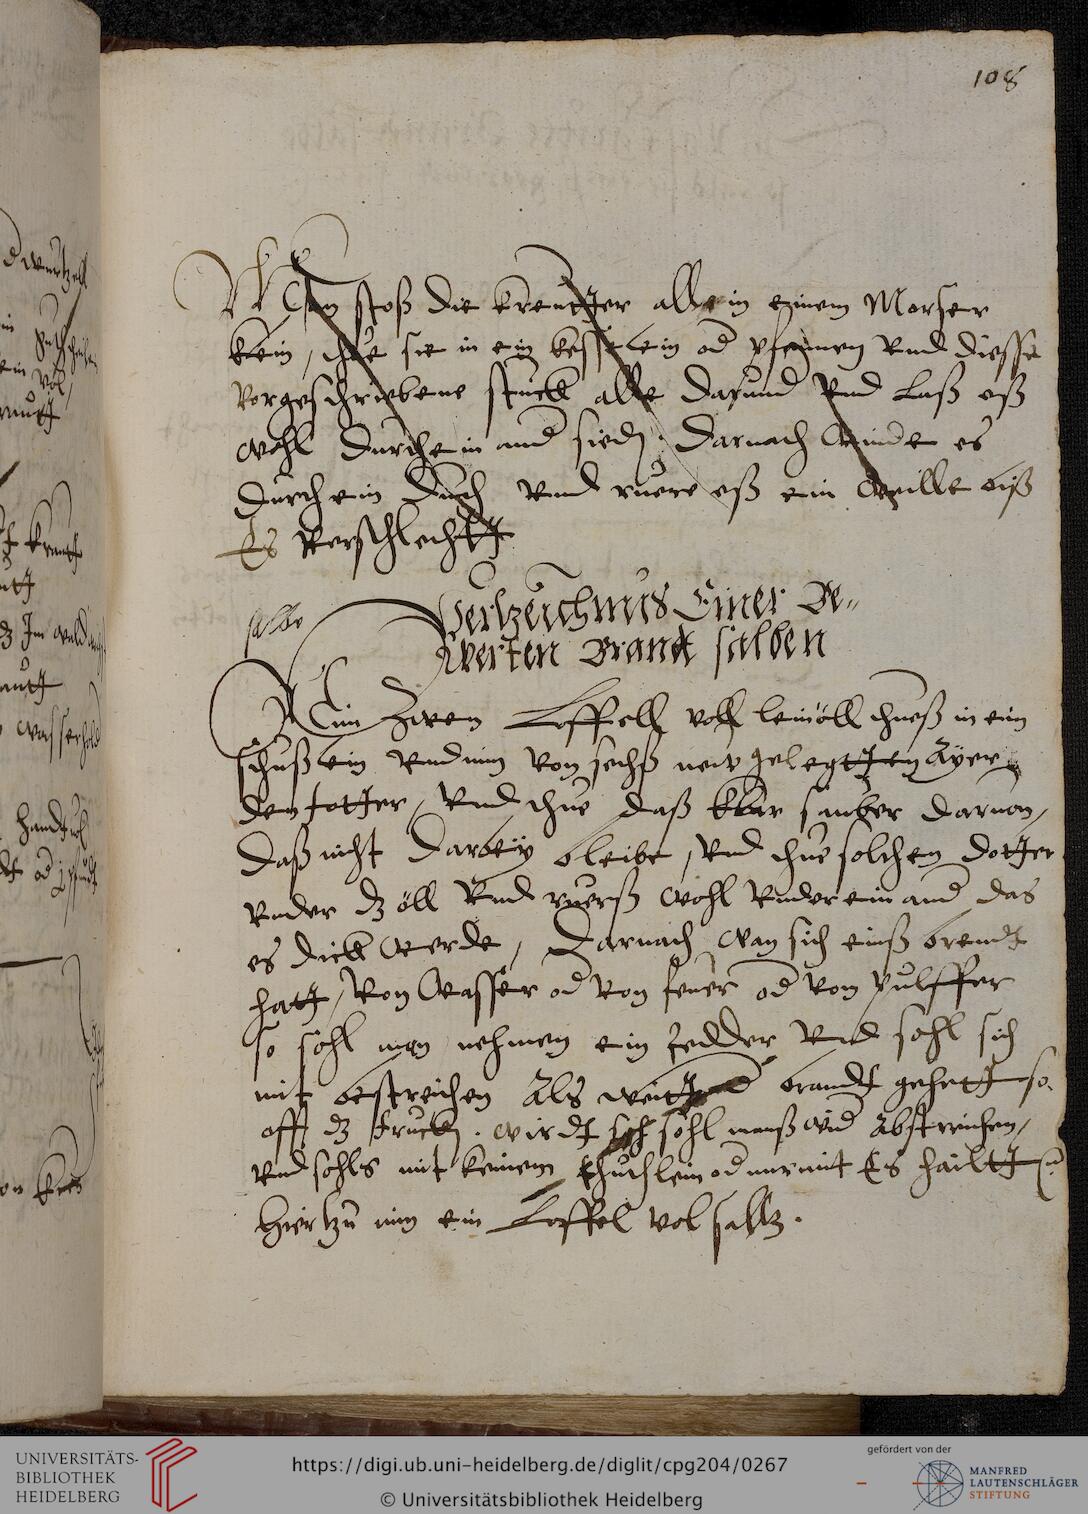 108
Man stoß die kreutter alle in einem Morser
klein, thue sie in ein kesselein od pfannen vnd diesse
vorgeschriebene stuckh alle darund vnd laß eß
wohl durch ein and sied. Darnach winde es
durch ein duch vnd ruere eß ein weille biß
Es verschlechtt
salbe
Vertzeichnus Einer Be„
werten Brant salben
Nim zwen Loffell voll leinöll thueß in ein
schußlein vnd nim von sechß new gelegtten Ayer
den totter, vnd thue daß klar sauber daruon,
daß nicht darbey bleibe, vnd thue solchen dotter
vnder dz öll vnd ruerß wohl vnder ein and das
es dick werde, Darnach wan sich einß brendt
hatt, von wasser od von feuer od von pulffer
so sohl man nehmen ein fedder vnd sohl sich
mit bestreichen Als weitt brandt gehett so
offt dz truck. wirdt sohl manß wid abstreichen,
vnd sohls mit keinem thuchlein od nur mit Es hailtt
Hiertzu nim ein Loffel vol saltz.
UNIVERSITÄTS-
BIBLIOTHEK
HEIDELBERG
https://digi.ub.uni-heidelberg.de/diglit/cpg204/0267
© Universitätsbibliothek Heidelberg
gefördert von der
MANFRED
LAUTENSCHLÄGER
STIFTUNG